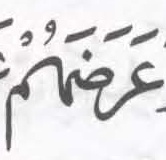 عَرَضَهُمْ